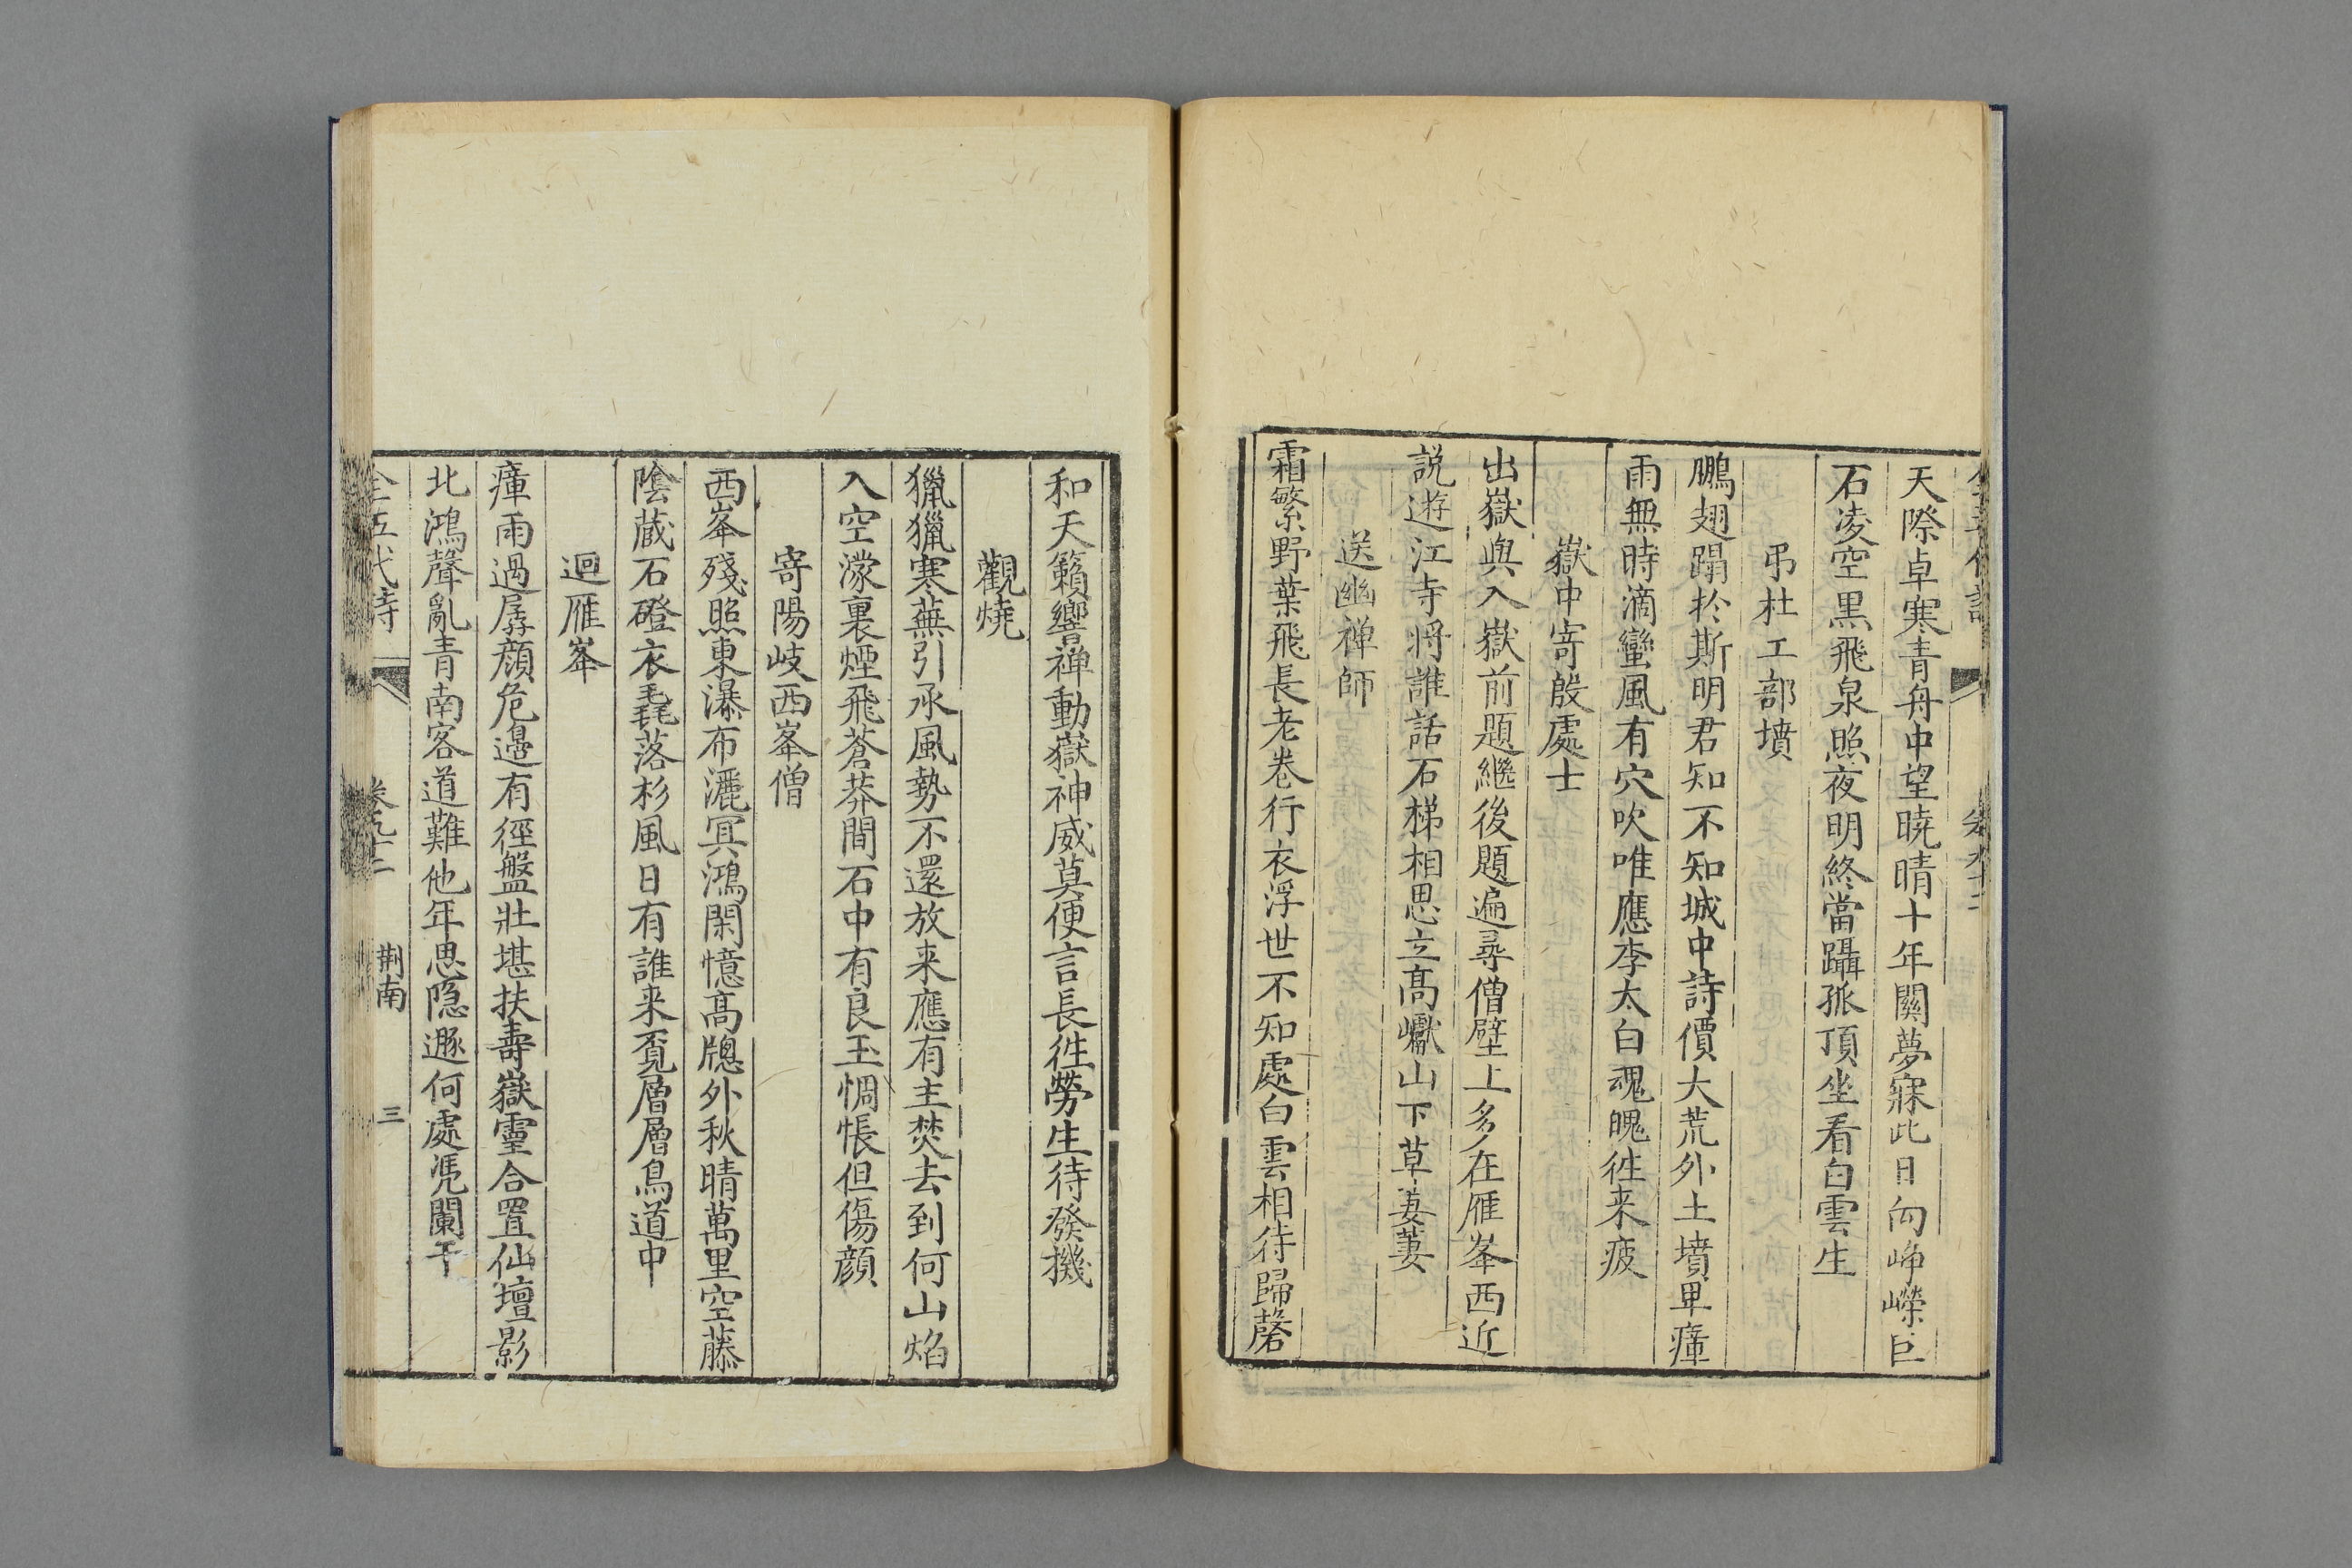 天際卓寒青舟中望曉晴十年關夢寐此日向崢嶸巨
石凌空黑飛泉照夜明終當躡孤頂坐看白雲生
弔杜工部墳
鵬翅蹋於斯明君知不知城中詩價大荒外土墳卑瘴
雨無時滴蠻風有穴吹唯應李太白魂魄徃来疲
嶽中寄殷處士
出嶽與入嶽前題繼後題遍尋僧壁上多在雁峯西近
説遊江寺将誰話石梯相思立髙巘山下草萋萋
送幽禅師
霜繁野葉飛長老卷行衣浮世不知處白雲相待歸磬
和天籟響禅動嶽神威莫便言長徃勞生待發機
觀燒
獵獵寒蕪引承風勢不還放来應有主焚去到何山焰
入空濛裏煙飛蒼莽間石中有良玉惆悵但傷顔
寄陽岐西峯僧
西峯殘照東瀑布灑冥鴻閑憶髙牎外秋晴萬里空藤
陰蔵石磴衣毳落杉風日有誰来覓層層鳥道中
迴雁峯
瘴雨過孱顔危邉有徑盤壯堪扶壽嶽靈合置仙壇影
北鴻聲亂青南客道難他年思隠遯何處凴闌干
全五代詩
卷九十二
荆南
三